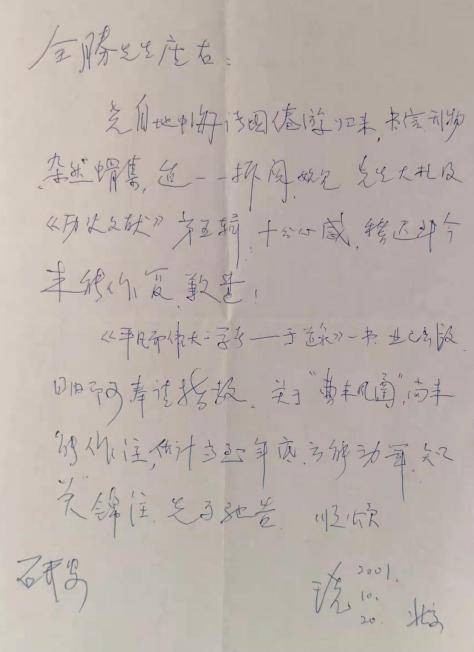 全勝先生座右：
尧自地中海诸国倦游归来，书信刊物
杂然蝟集，迨一一拆阅，始见先生大札及
《历史文献》第五辑，十分心感，稽迟至今
未能作复，歉甚！
《平凡而伟大的学者——于道泉》一书业已出版，
日内即可奉请指教。关于“曹末风函”，尚未
能作注，估计当至年底方能动笔，知
关锦注，先予驰告。顺颂
研安
王尧
2001.
10.
20.
北京